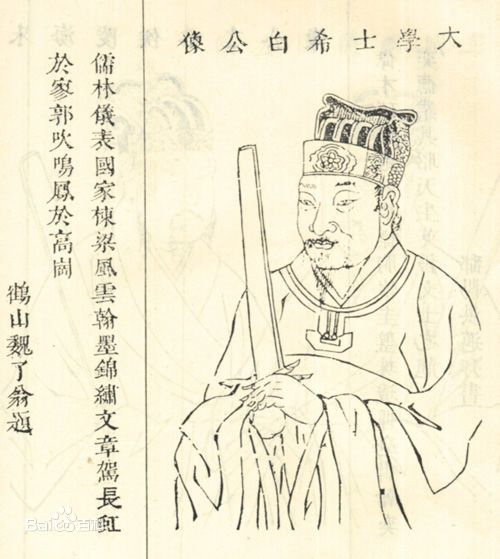 大學士希白公像
儒林儀表國家棟梁風雲翰墨錦繡文章駕長虹
於寥郭吹鳴鳳於高崗
鶴山魏了翁題
Bai 百科